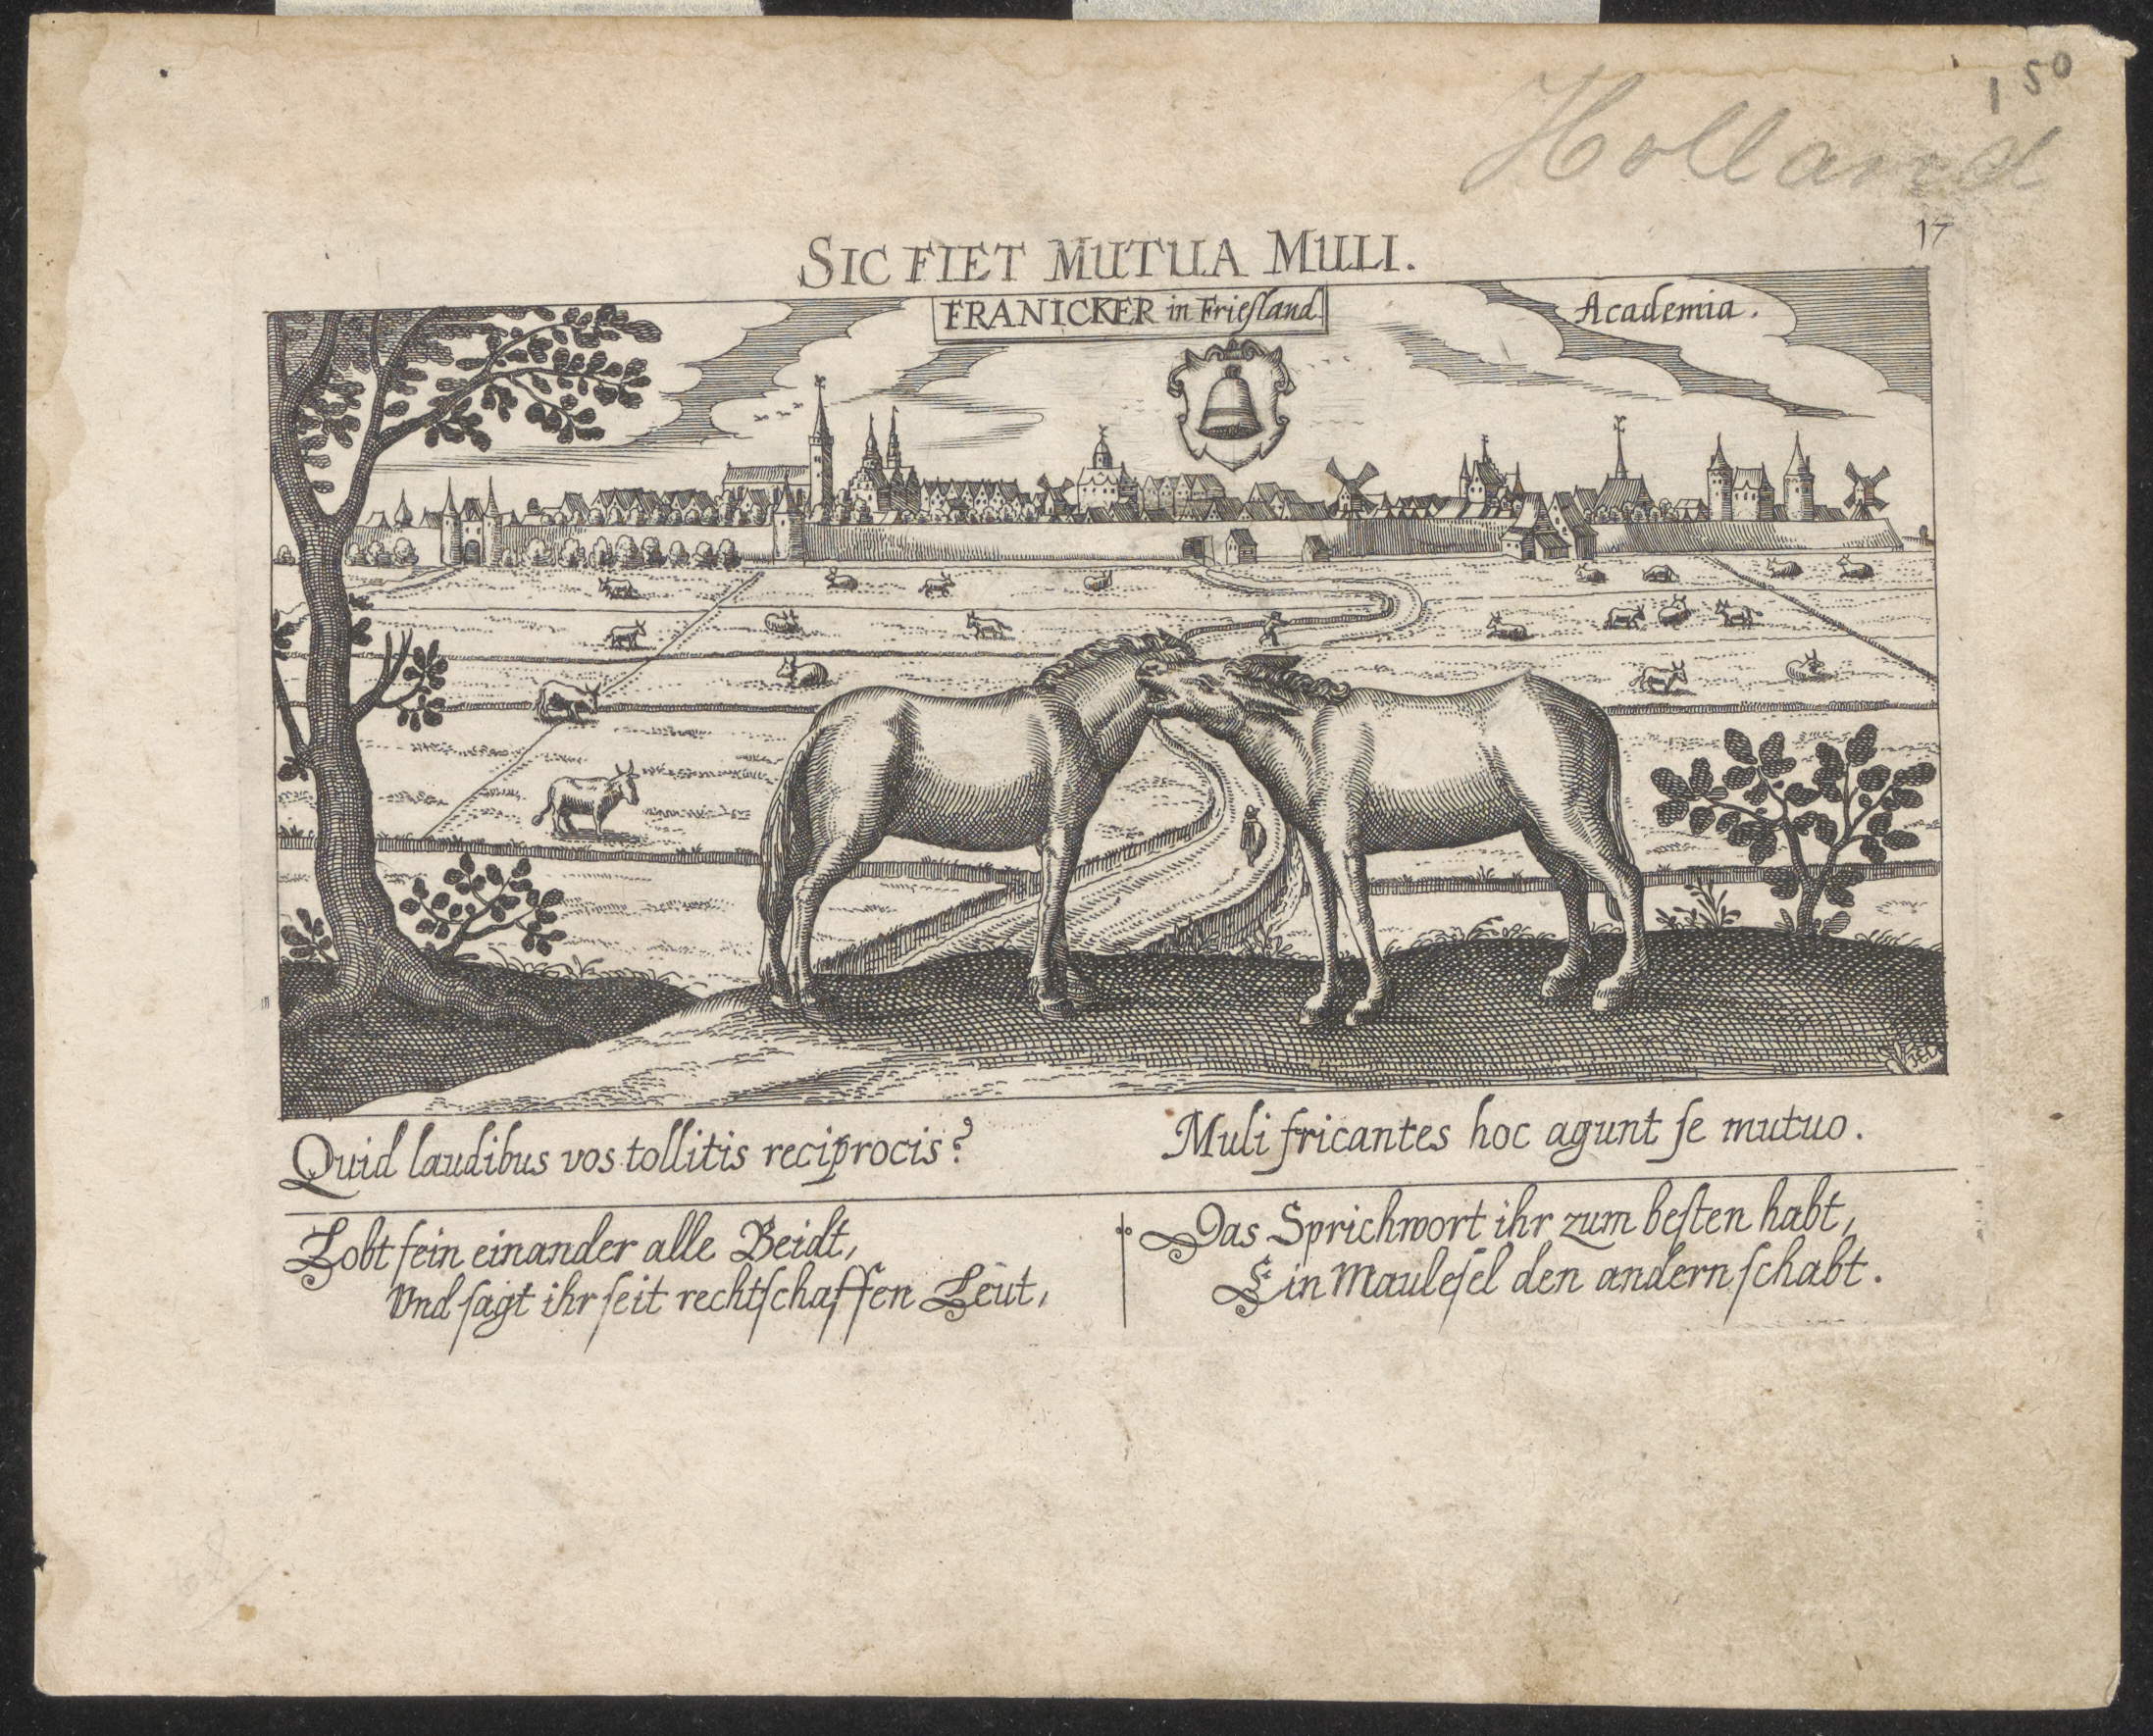 150
Holland
17
SIC FIET MUTUA MULI.
FRANICKER in Frieſland.
Academia.
Quid laudibus vos tollitis reciprocis?
Muli fricantes hoc agunt ſe mutuo.
Lobt fein einander alle Beidt,
Vnd ſagt ihr ſeit rechtſchaffen Leüt,
Das Sprichwort ihr zum beſten habt,
Ein Mauleſel den andern ſchabt.